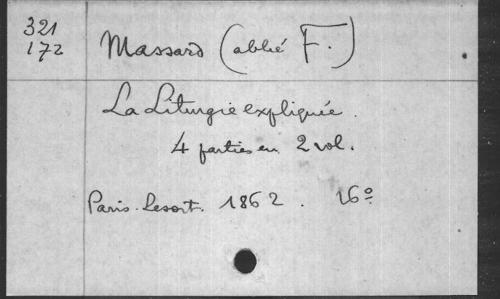 321
172
Massard (abbé F.)
La Liturgie expliquée.
4 parties en 2 vol.
Paris. Lesort. 1862. 16º